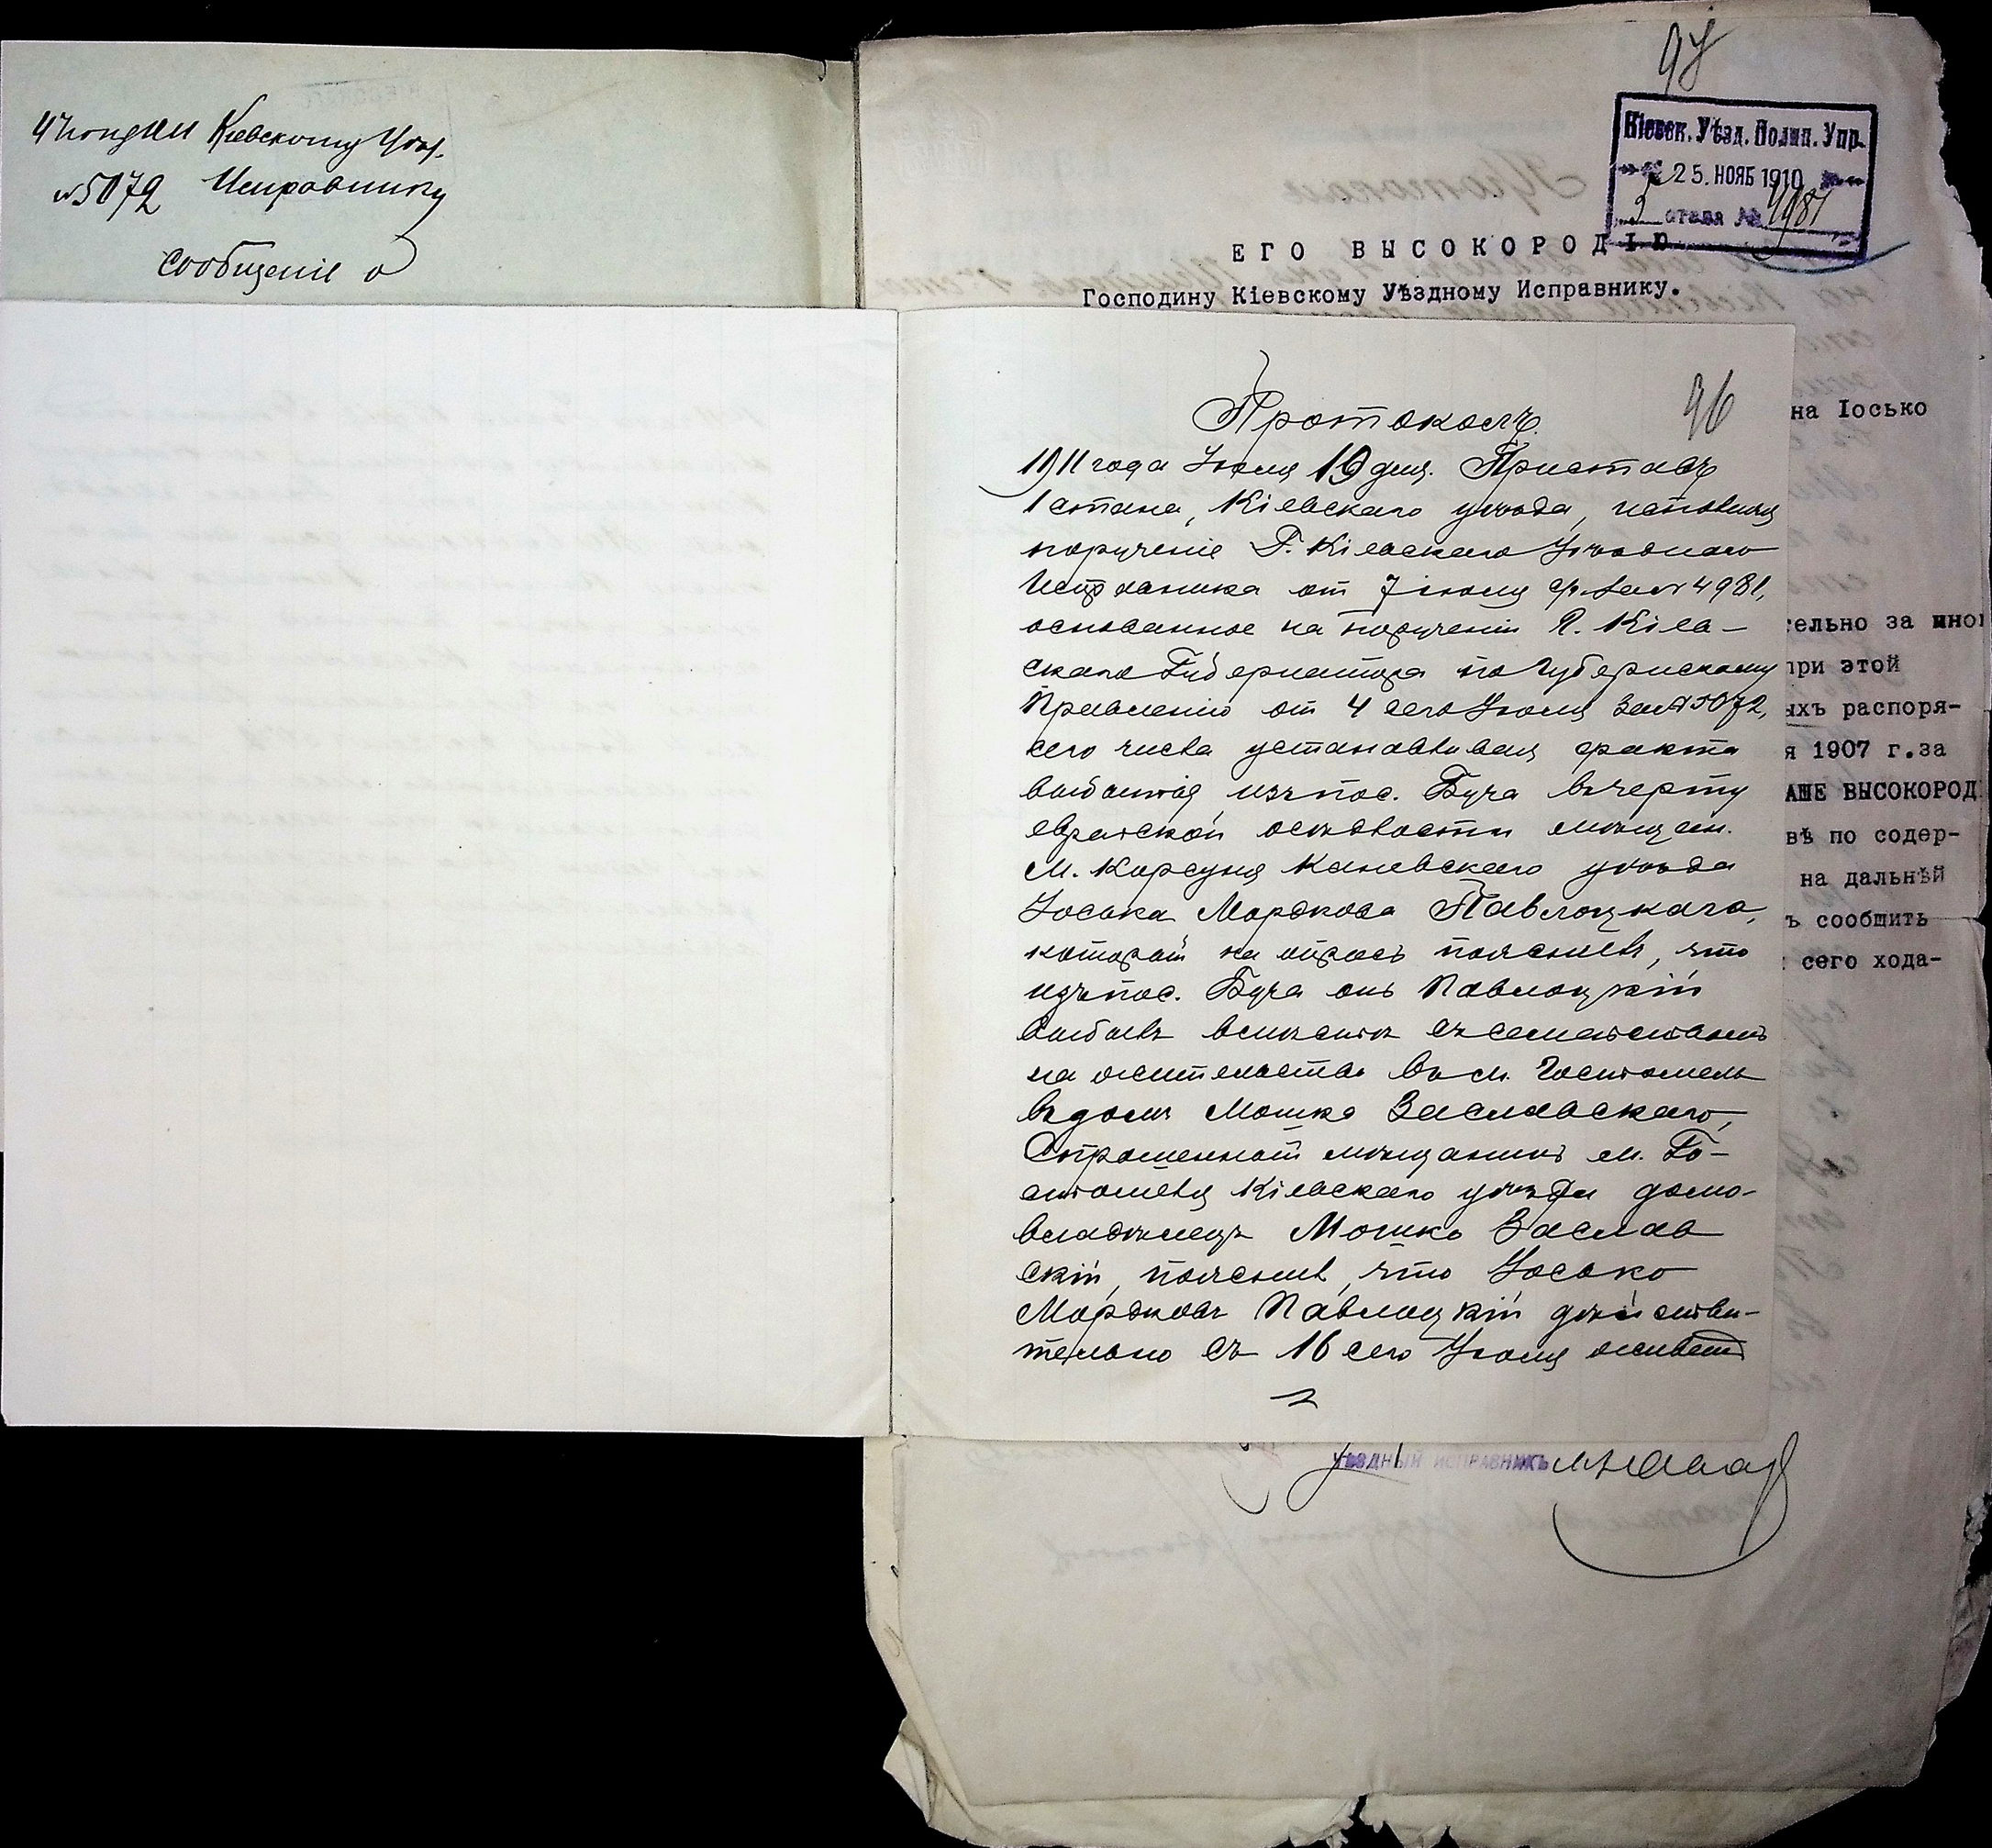 Кіевскому Уѣзд.
№ 5072 Исправнику
Сообщеніе о
97
Кіевск. Уѣзд. Полиц. Упр.
25. НОЯБ 1910
стола №
ЕГО ВЫСОКОРОДІЮ
Господину Кіевскому Уѣздному Исправнику.
на Іосько
тельно за мно
при этой
ыхъ распоря-
я 1907 г.за
АШЕ ВЫСОКОРОД
вѣ по содер-
на дальнѣй
ъ сообщить
сего хода-
96
Протоколъ.
1911 года Іюля 19 дня. Приставъ
1 стана, Кіевскаго уѣзда, исполняя
порученіе Г. Кіевскаго Уѣзднаго
Исправника от 7 іюля с/г. за № 4981,
основанное на порученіи Г. Кіев-
скаго Губернатора по Губернскому
Правленію от 4 сего Іюля за № 5072,
сего числа устанавливая факта
выбытія изъ пос. Буча в черту
еврейской осѣдлости мѣщан.
м. Корсуня Каневскаго уѣзда
Іоська Мордкова Павлоцкаго,
который на опросъ пояснилъ, что
изъ пос. Буча онъ Павлоцкій
выбылъ вмѣстѣ съ семействомъ
на жительство въ м. Гостомель
въ домъ Мошка Заславскаго,
Спрошенный мѣщанинъ м. Го-
стомеля Кіевскаго уѣзда домо-
владѣлецъ Мошко Заслав
скій, пояснил, что Іосько
Мордковъ Павлоцкій дѣйстви-
тельно съ 16 сего Іюля живетъ
УѢЗДНЫЙ ИСПРАВНИКЪ